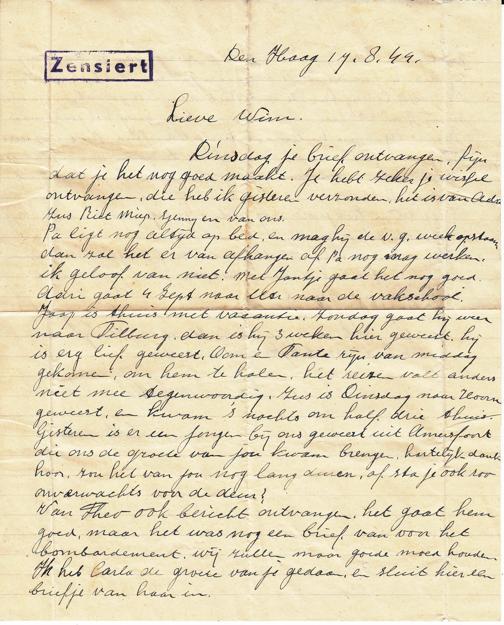 Zensiert
Den Haag 17.8.44.
Lieve Wim.
Dinsdag je brief ontvangen, fijn
dat je het nog goed maakt. Je hebt zeker je
ontvangen, die heb ik gisteren verzonden, het is van
Zus Riet Miep, en van ons.
Pa ligt nog altijd op bed, en mag hij de v.g. week opstaan
dan zal het er van afhangen of Pa nog mag werken.
ik geloof van niet. Met Jantje gaat het nog goed
gaat 4 Sept naar naar de vakschool.
Jaap is thuis met vacantie. Zondag gaat hij weer
naar Tilburg, dan is hij 3 weken hier geweest. hij
is erg lief geweest. Oom e Tante zijn van middag
gekomen, om hem te halen, het reizen valt anders
niet mee tegenwoordig. Zus is Dinsdag naar Hoorn
geweest, en kwam 's nachts om half drie thuis.
Gisteren is er een jongen bij ons geweest uit Amersfoort
die ons de groete van jou kwam brengen, hartelijk dank
hoor, zou het van jou nog lang duren, of sta je ook zoo
onverwachts voor de deur?
Van Theo ook bericht ontvangen, het gaat hem
goed, maar het was nog een brief van voor het
bombardement, wij zullen maar goede moed houden.
Ik heb Carla de groete van je gedaan, en sluit hier een
briefje van haar in.